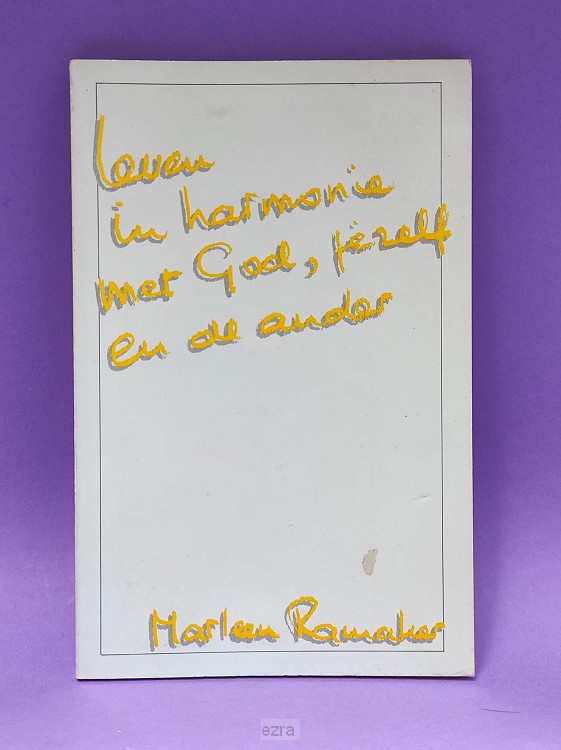 leven
in harmonie
met God, jezelf
en de ander
Marleen Ramaker
ezra